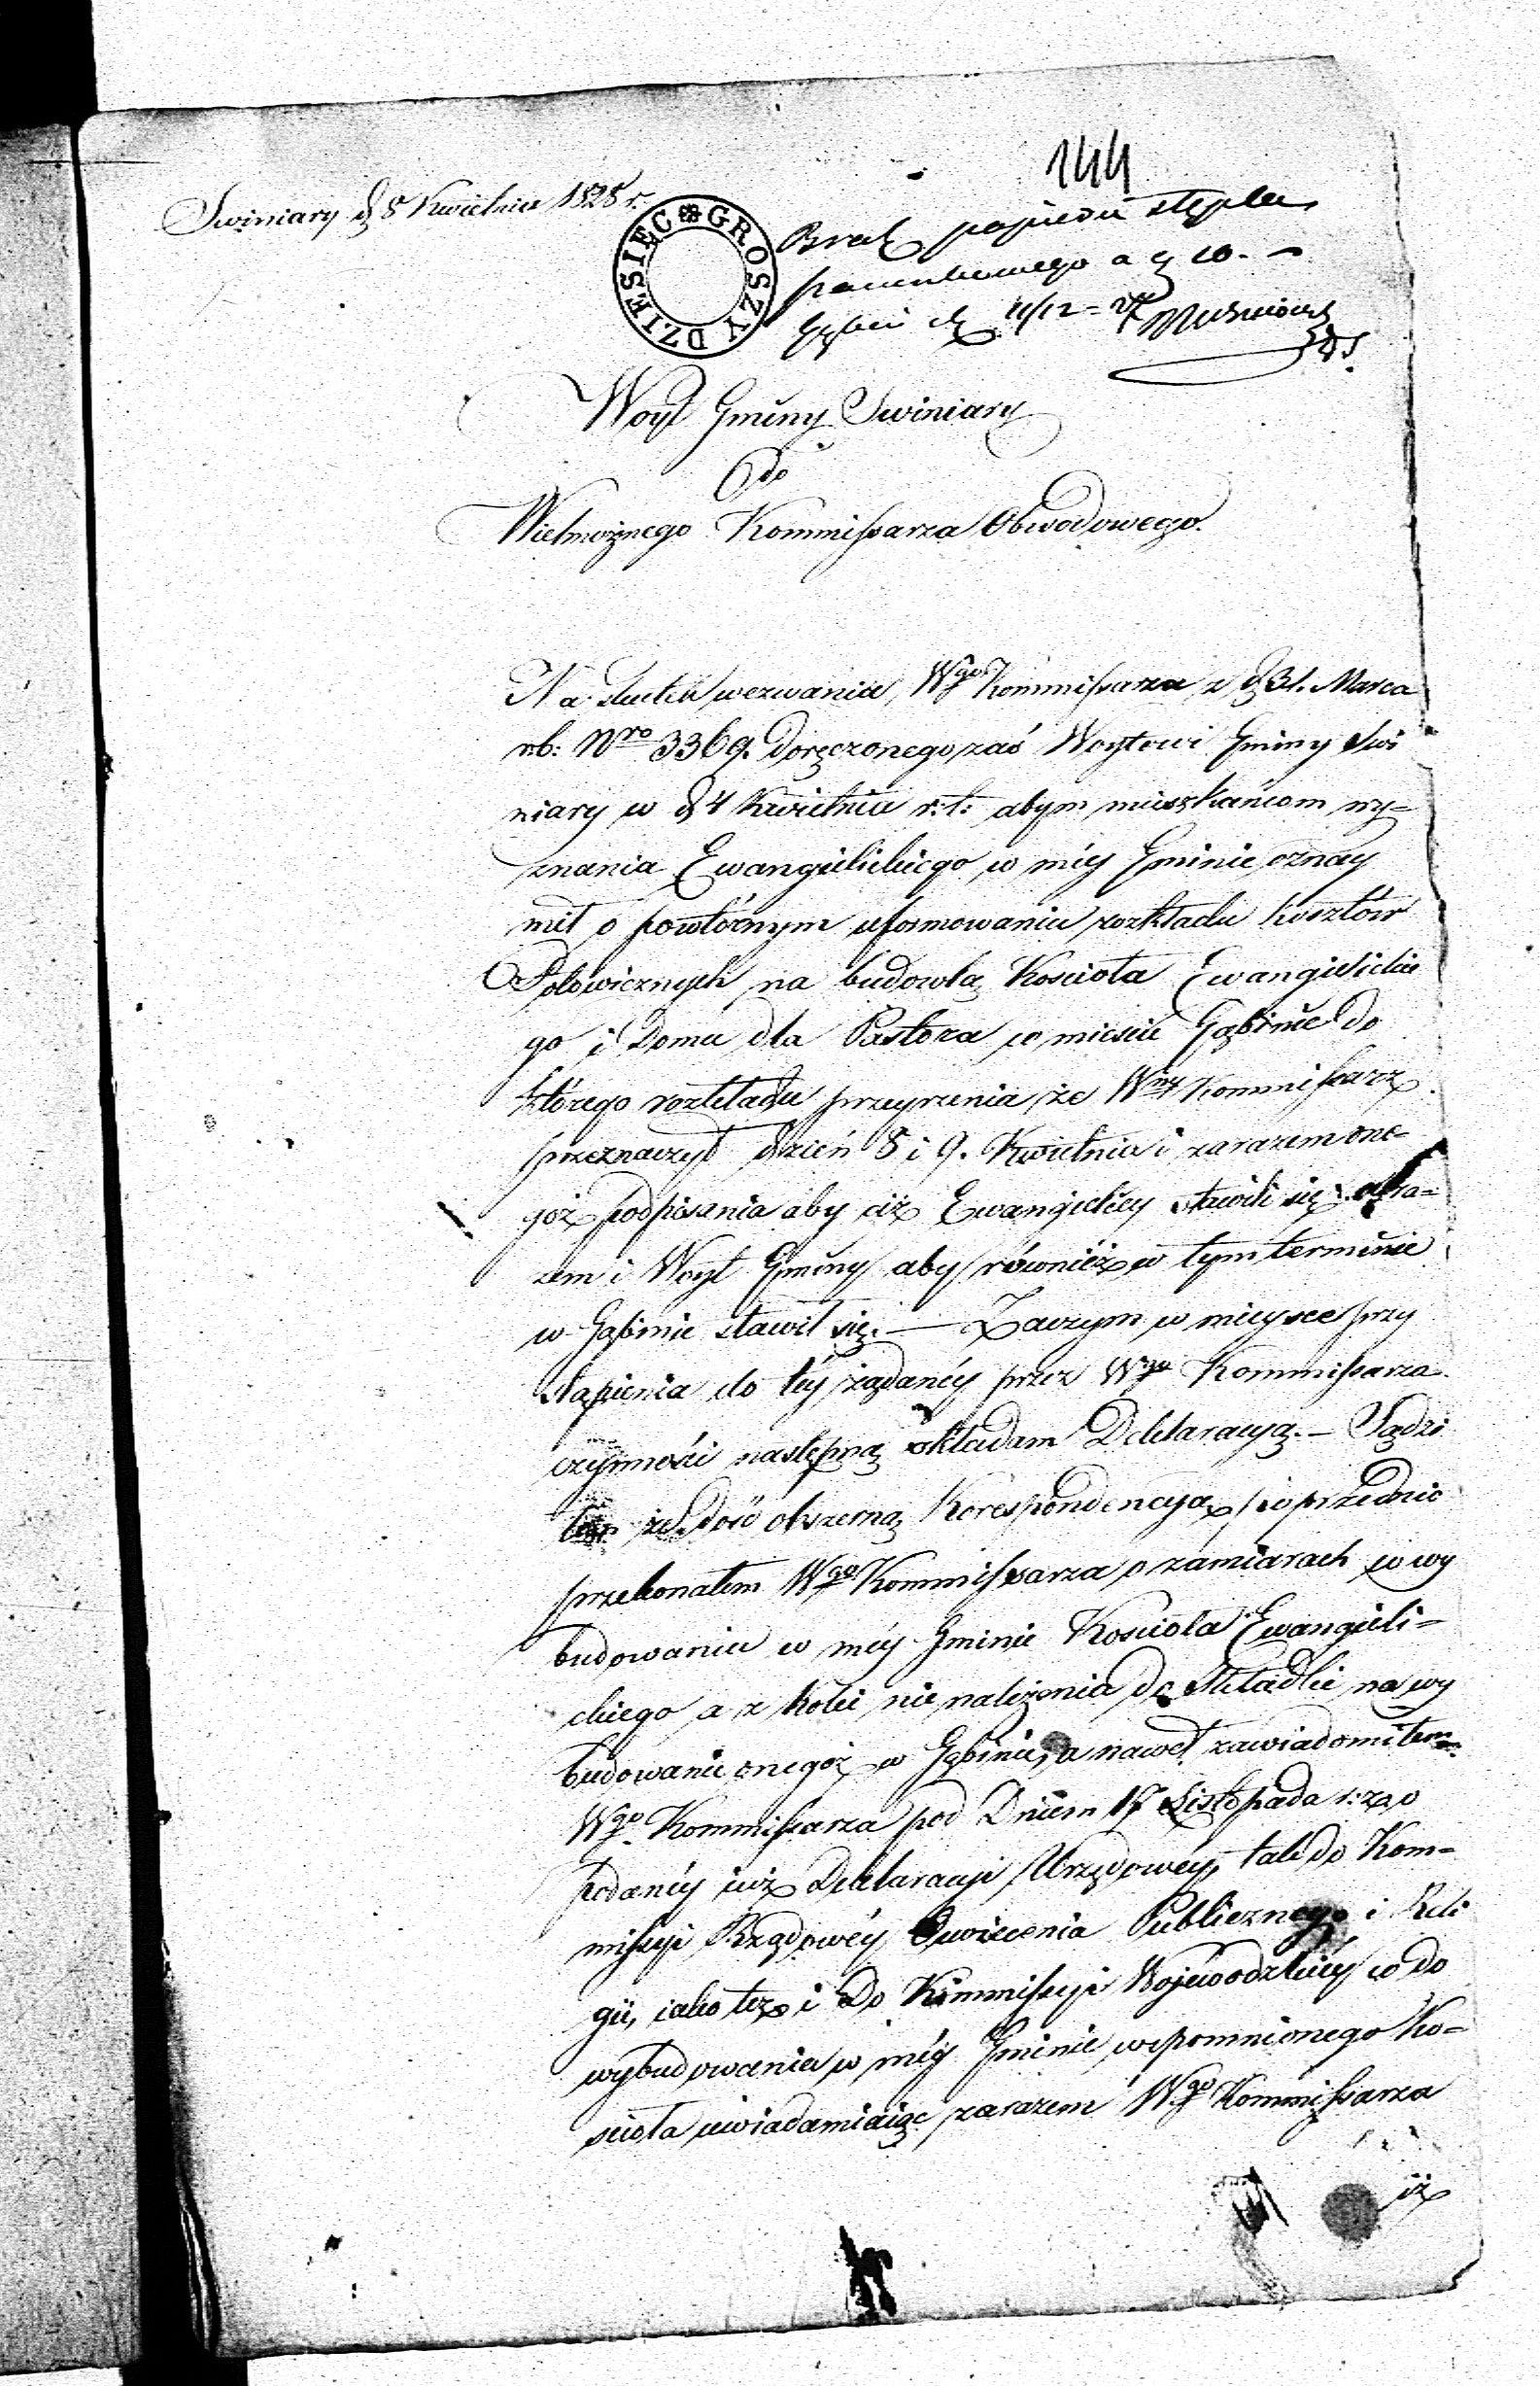 144
Swiniary d 8 Kwietnia 1828 r.
GROSZY DZIESIĘC
Brak papieru stępla
a g 10. —
d 11/12
Woyt Gminy Swiniary
do
Wielmożnego Kommissarza Obwodowego.
Na skutek wezwania Wgo Kommissarza z d 31. Marca
rb: Nro 3369. doręczonego zaś Woytowi Gminy Swi
niary w d 4 Kwietnia r: t: abym mieszkańcom wy=
znania Ewangielickiego w méy Gminie oznay
mił o powtórnym uformowaniu rozkładu kosztów
Połowicznych na budowlą Kościoła Ewangielickie
go i Domu dla Pastora w mieście Gąbinie do
którego rozkładu przeyrzenia że Wny Kommissarz
przeznaczył dzień 8 i 9. Kwietnia i zarazem one=
goż podpisania aby ciż Ewangelicy stawili się a za=
zem i Woyt Gminy aby również w tym terminie
w Gąbinie stawił się. — Zaczym w mieysce przy
stąpienia do téy żądanéy przez Wgo Kommissarza
czynności następną składam Deklaracyą. — Sądzi
łem że dość obszerną Korespondencyą poprzednio
przekonałem Wgo Kommissarza o zamiarach w wy
budowaniu w méy Gminie Kościoła Ewangieli=
ckiego a z kolei nie należenia do składki na wy
budowanie onegoż w Gąbinie, a nawet zawiadomiłem
Wgo Kommissarza pod Dniem 17 Listopada r: z: o
podanéy iuż Deklaracyi Urzędowéy tak do Kom=
missyi Rządowéy Oswiecenia Publicznego i Reli
gii, iako też i do Kommissyi Wojewodzkiéy co do
wybudowania w méy Gminie wspomnionego Ko=
ścioła uwiadamiaiąc zarazem Wgo Kommissarza
iż